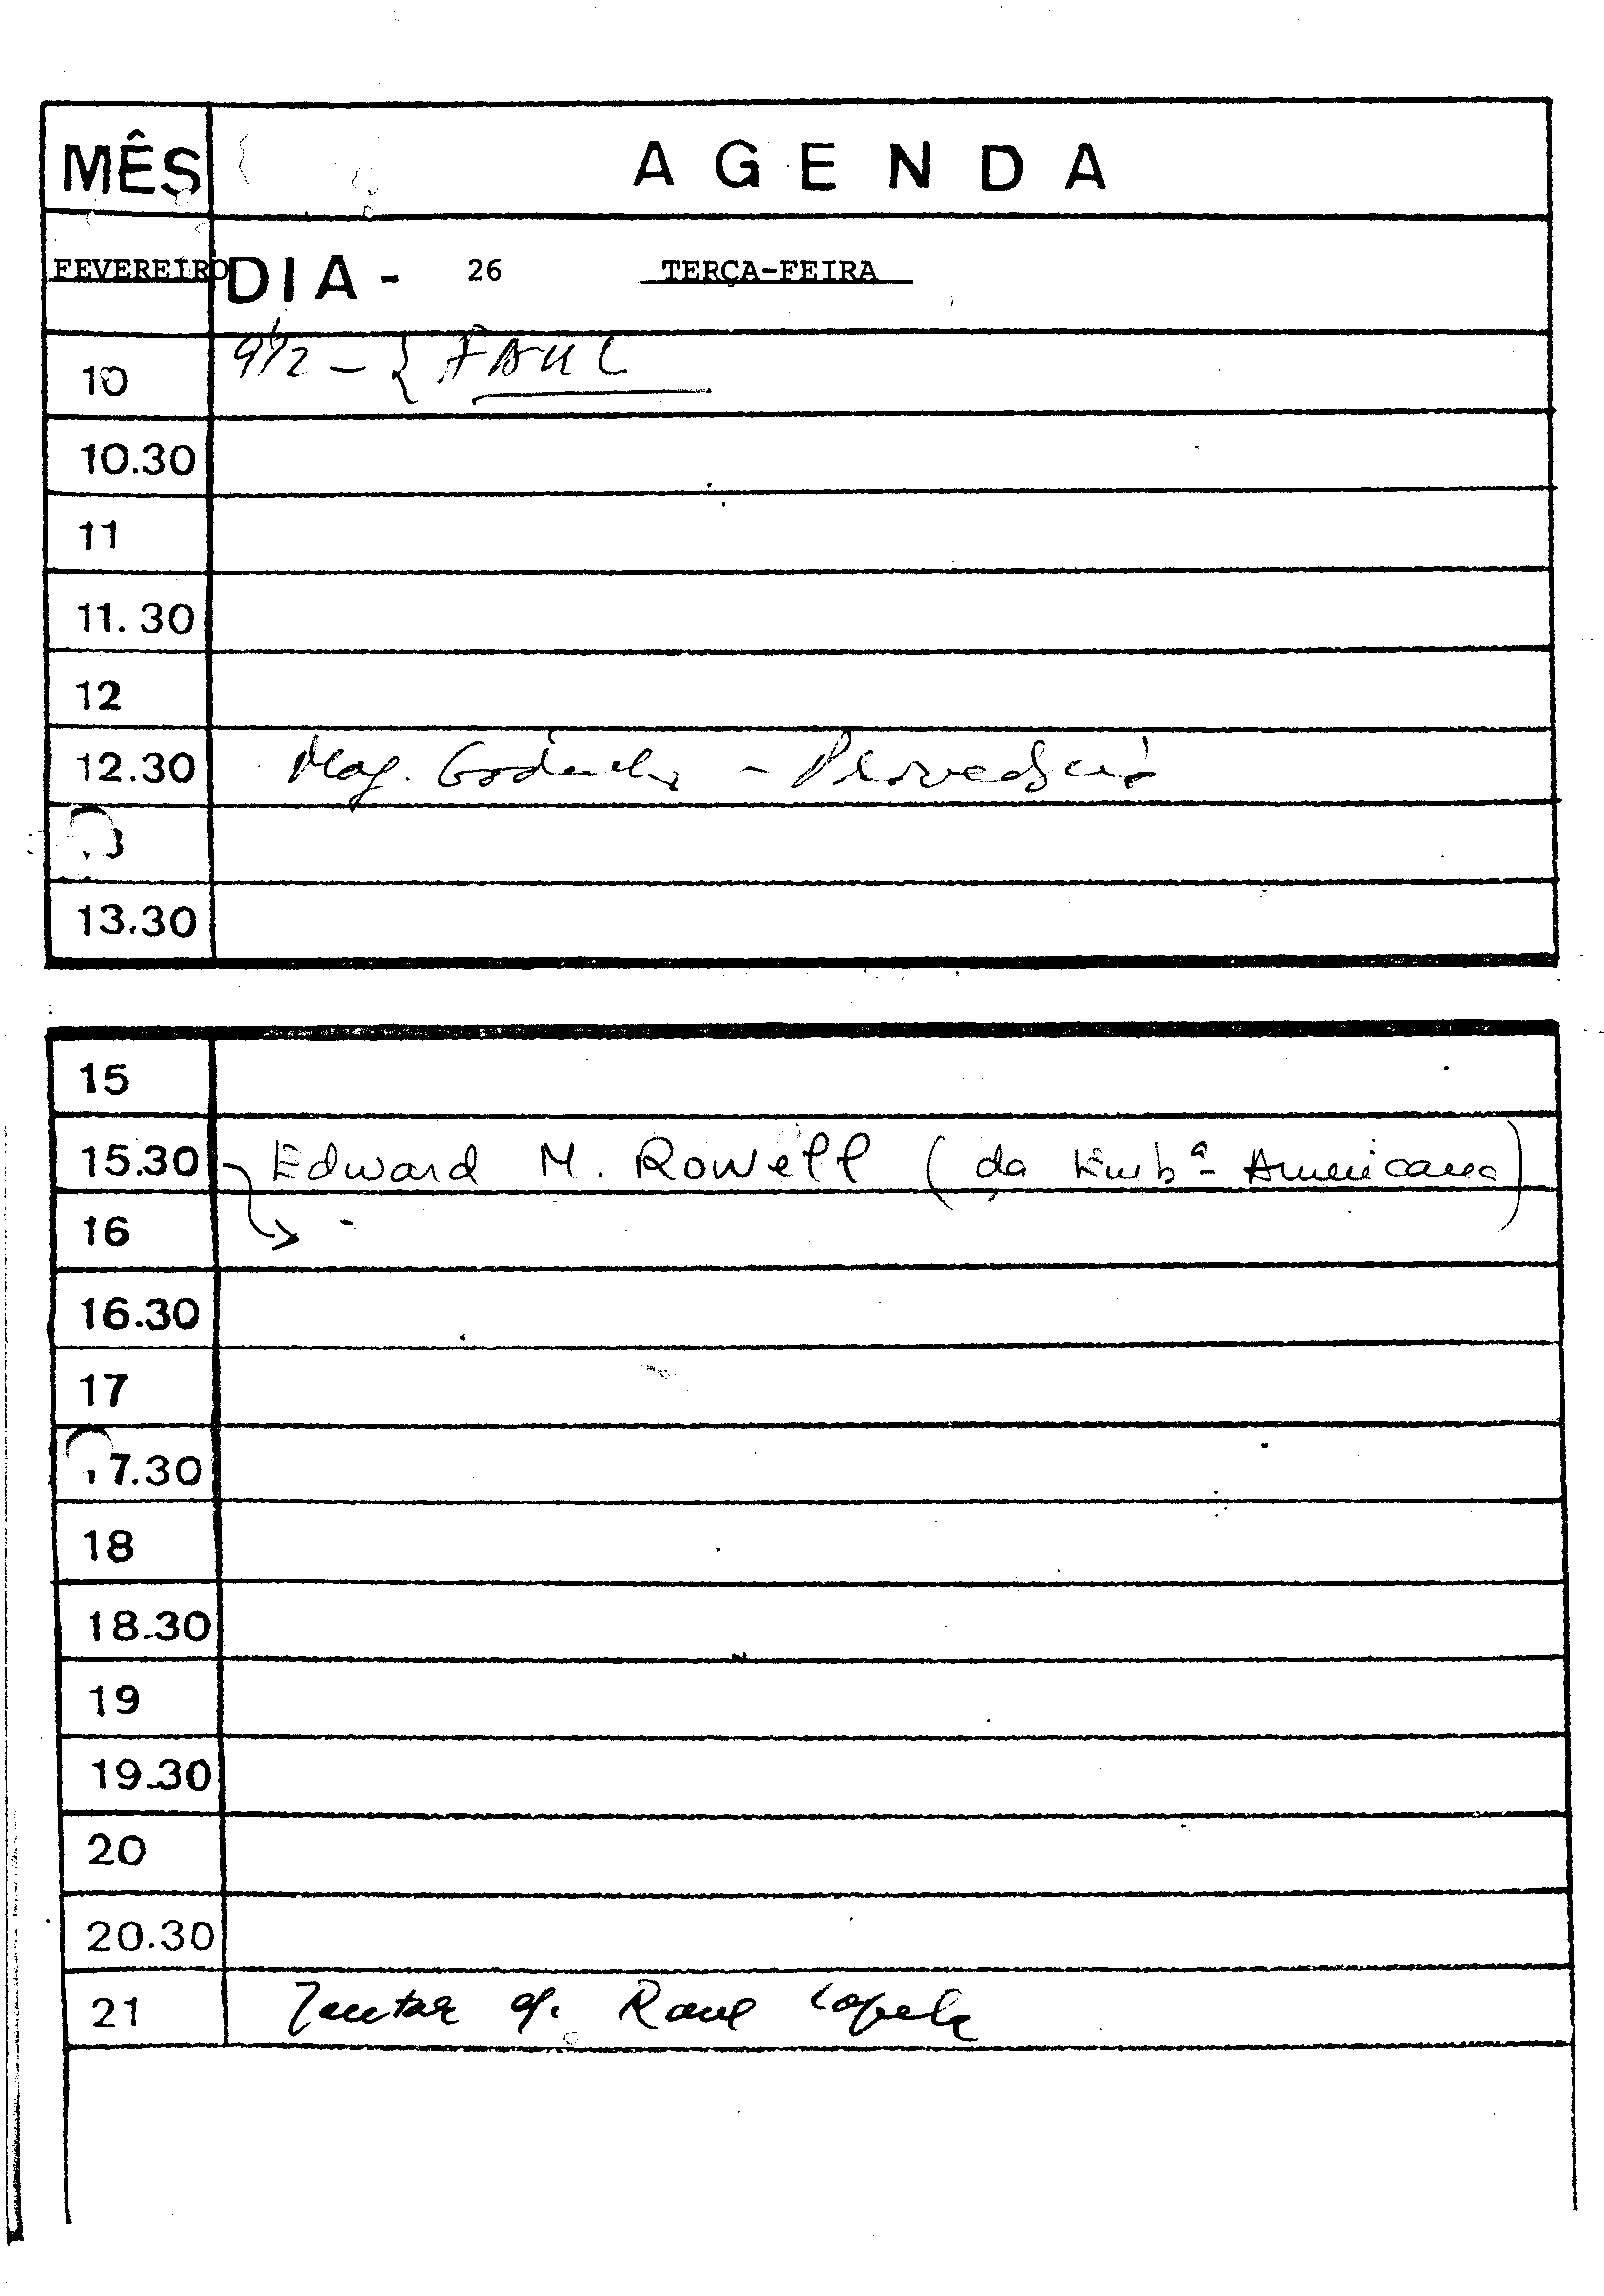 MÊS A G E N D A
FEVEREIRO DIA - 26 TERÇA-FEIRA
10 9 1/2 - { FAUL
10.30
11
11.30
12
12.30 Maj. - Provedoria
13
13.30
15
15.30 Edward M. Rowell (da Embª Americana)
16
16.30
17
17.30
18
18.30
19
19.30
20
20.30
21 Jantar c/. Raul Capela